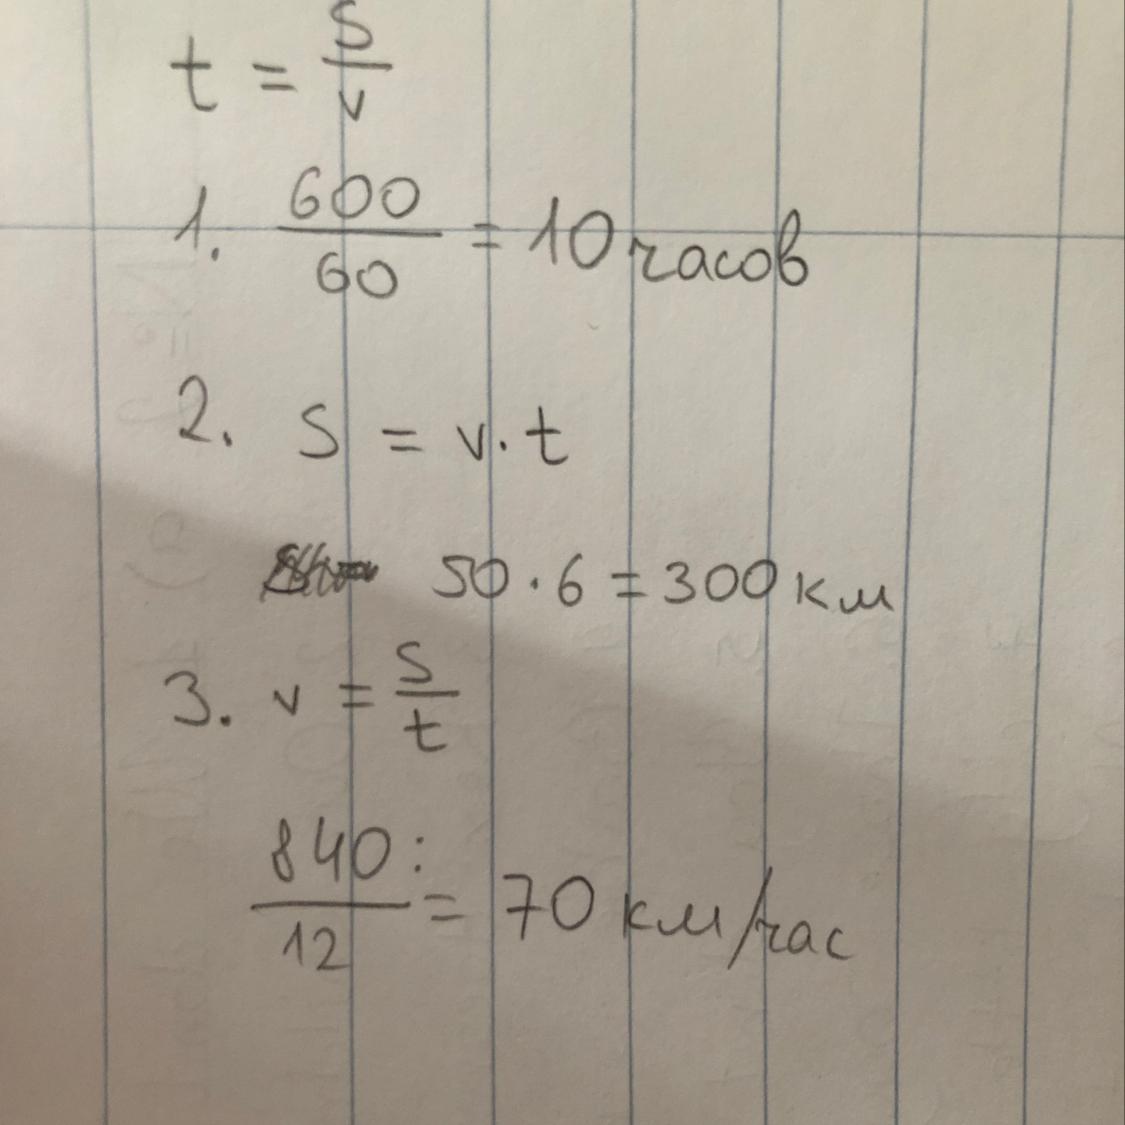 t = S/v
1. 600/60 = 10 часов
2. S = v · t
50 · 6 = 300 км
3. v = S/t
840:/12 = 70 км/час